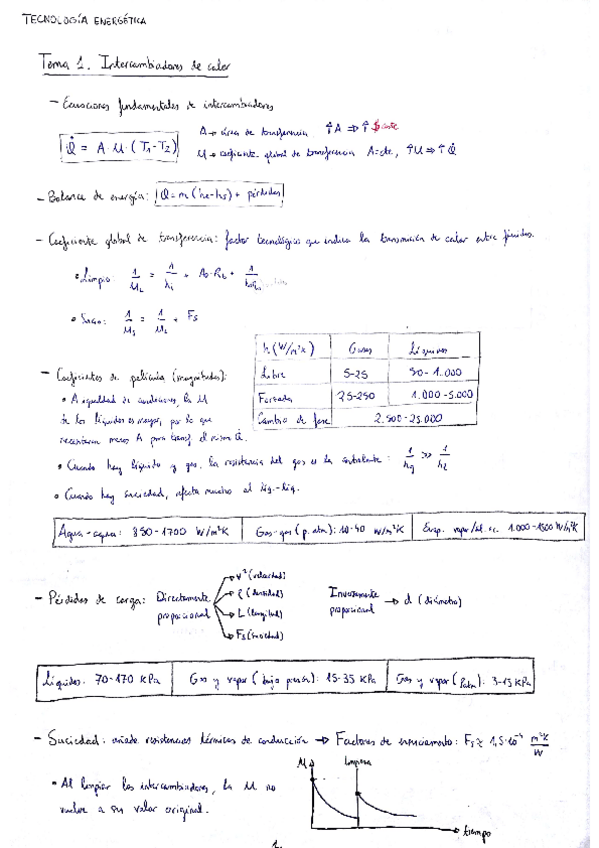 TECNOLOGÍA ENERGÉTICA
Tema 1. Intercambiadores de calor
- Ecuaciones fundamentales de intercambiadores
Q̇ = A · U · (T1 - T2)
A → área de transferencia ↑A ⇒ ↑ $coste
U → coeficiente global de transferencia A=cte, ↑U ⇒ ↑ Q̇
- Balance de energía: Q = m (he-hs) + pérdidas
- Coeficiente global de transferencia: factor tecnológico que indica la transmisión de calor entre fluidos.
• Limpio: 1/UL = 1/hi +
• Sucio: 1/Us = 1/UL + Fs
- Coeficientes de película (magnitudes):
h (W/m²K) | Gases | Líquidos
Libre | 5-25 | 50-1.000
Forzada | 25-250 | 1.000-5.000
Cambio de fase | 2.500-25.000
• A igualdad de condiciones, la U
de los líquidos es mayor, por lo que
necesitarán menos A para transf. el mismo Q.
• Cuando hay líquido y gas, la resistencia del gas es la controlante: 1/hg >> 1/hL
• Cuando hay suciedad, afecta mucho al líq.-líq.
Agua-agua: 850-1700 W/m²K | Gas-gas (p. atm): 10-40 W/m²K | Evap. vapor/
- Pérdidas de carga: Directamente proporcional
v² (velocidad)
ρ (densidad)
L (longitud)
Fs (suciedad)
Inversamente proporcional → d (diámetro)
Líquidos: 70-170 KPa | Gas y vapor (bajo presión): 15-35 KPa | Gas y vapor (Patm): 3-15 KPa
- Suciedad: añade resistencias térmicas de conducción → Factores de ensuciamiento: Fs ≈ 1,5·10⁻⁴ m²K/W
• Al limpiar los intercambiadores, la U no
vuelve a su valor original.
U
limpieza
tiempo
1.